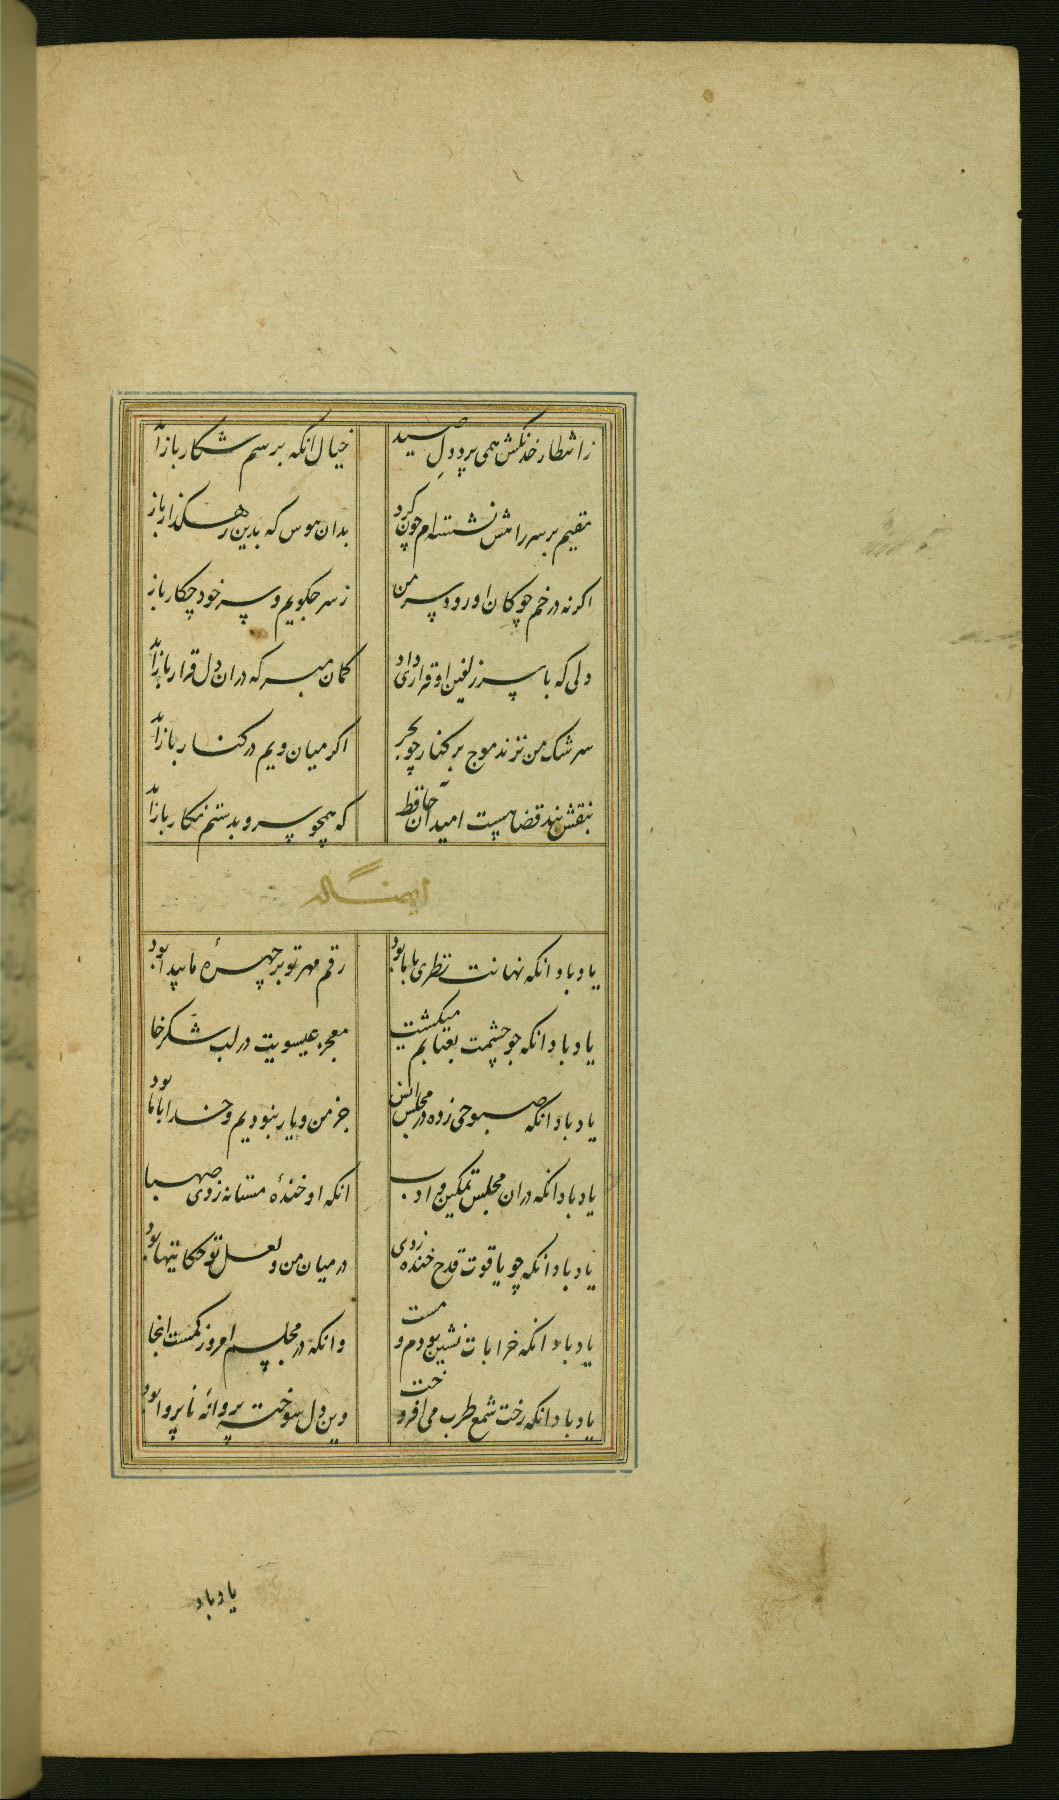 ز انتظار خدنکش همی پرد دل صید
خیال انکه برسم شکار باز آید
مقیم بر سر راهش نشسته‌ام چون کرد
بدان هوس که بدین رهکذار باز
اکر نه در خم چوکان او رود سر من
ز سر چکویم و سر خود چکار باز
دلی که با سر زلفین او قراری داد
کمان مبر که دران دل قرار باز آید
سرشک من نزند موج بر کنار چو بحر
اکر میان ویم در کنار باز آید
بنقش بند قضا هست امید آن حافظ
که همچو سرو بدستم نکار باز آید
ایضا له
یاد باد انکه نهانت نظری با ما بود
رقم مهر تو بر چهرهٔ ما پیدا بود
یاد باد انکه چو چشمت بعتابم میکشت
معجزه عیسویت در لب شکر خا
یاد باد انکه صبوحی زده در مجلس انس
جز من و یار نبودیم و خدا با ما بود
یاد باد انکه دران مجلس تمکین و ادب
انکه او خندهٔ مستانه زدی صهبا
یاد باد انکه چو یاقوت قدح خنده زدی
در میان من و لعل تو حکایتها بود
یاد باد انکه خرابات نشین بودم و مست
وانکه در مجلسم امروز کمست انجا
یاد باد انکه رخت شمع طرب می افروخت
وین دل سوخته پروانه ناپروا بود
یاد باد